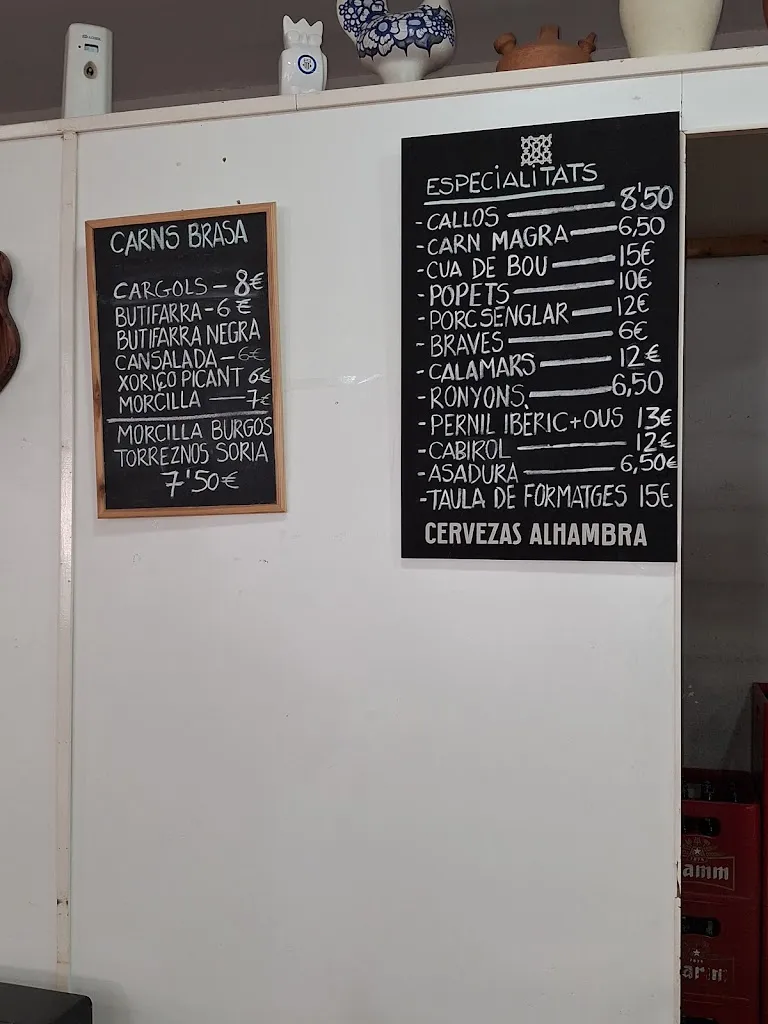 CARNS BRASA
CARGOLS - 8€
BUTIFARRA - 6€
BUTIFARRA NEGRA
CANSALADA - 6€
XORIÇO PICANT 6€
MORCILLA — 7€
MORCILLA BURGOS
TORREZNOS SORIA
7'50€
ESPECIALITATS
- CALLOS — 8'50
- CARN MAGRA — 6,50
- CUA DE BOU — 15€
- POPETS — 10€
- PORC SENGLAR — 12€
- BRAVES — 6€
- CALAMARS — 12€
- RONYONS — 6,50
- PERNIL IBÈRIC + OUS 13€
- CABIROL — 12€
- ASADURA — 6,50€
- TAULA DE FORMATGES 15€
CERVEZAS ALHAMBRA
amm